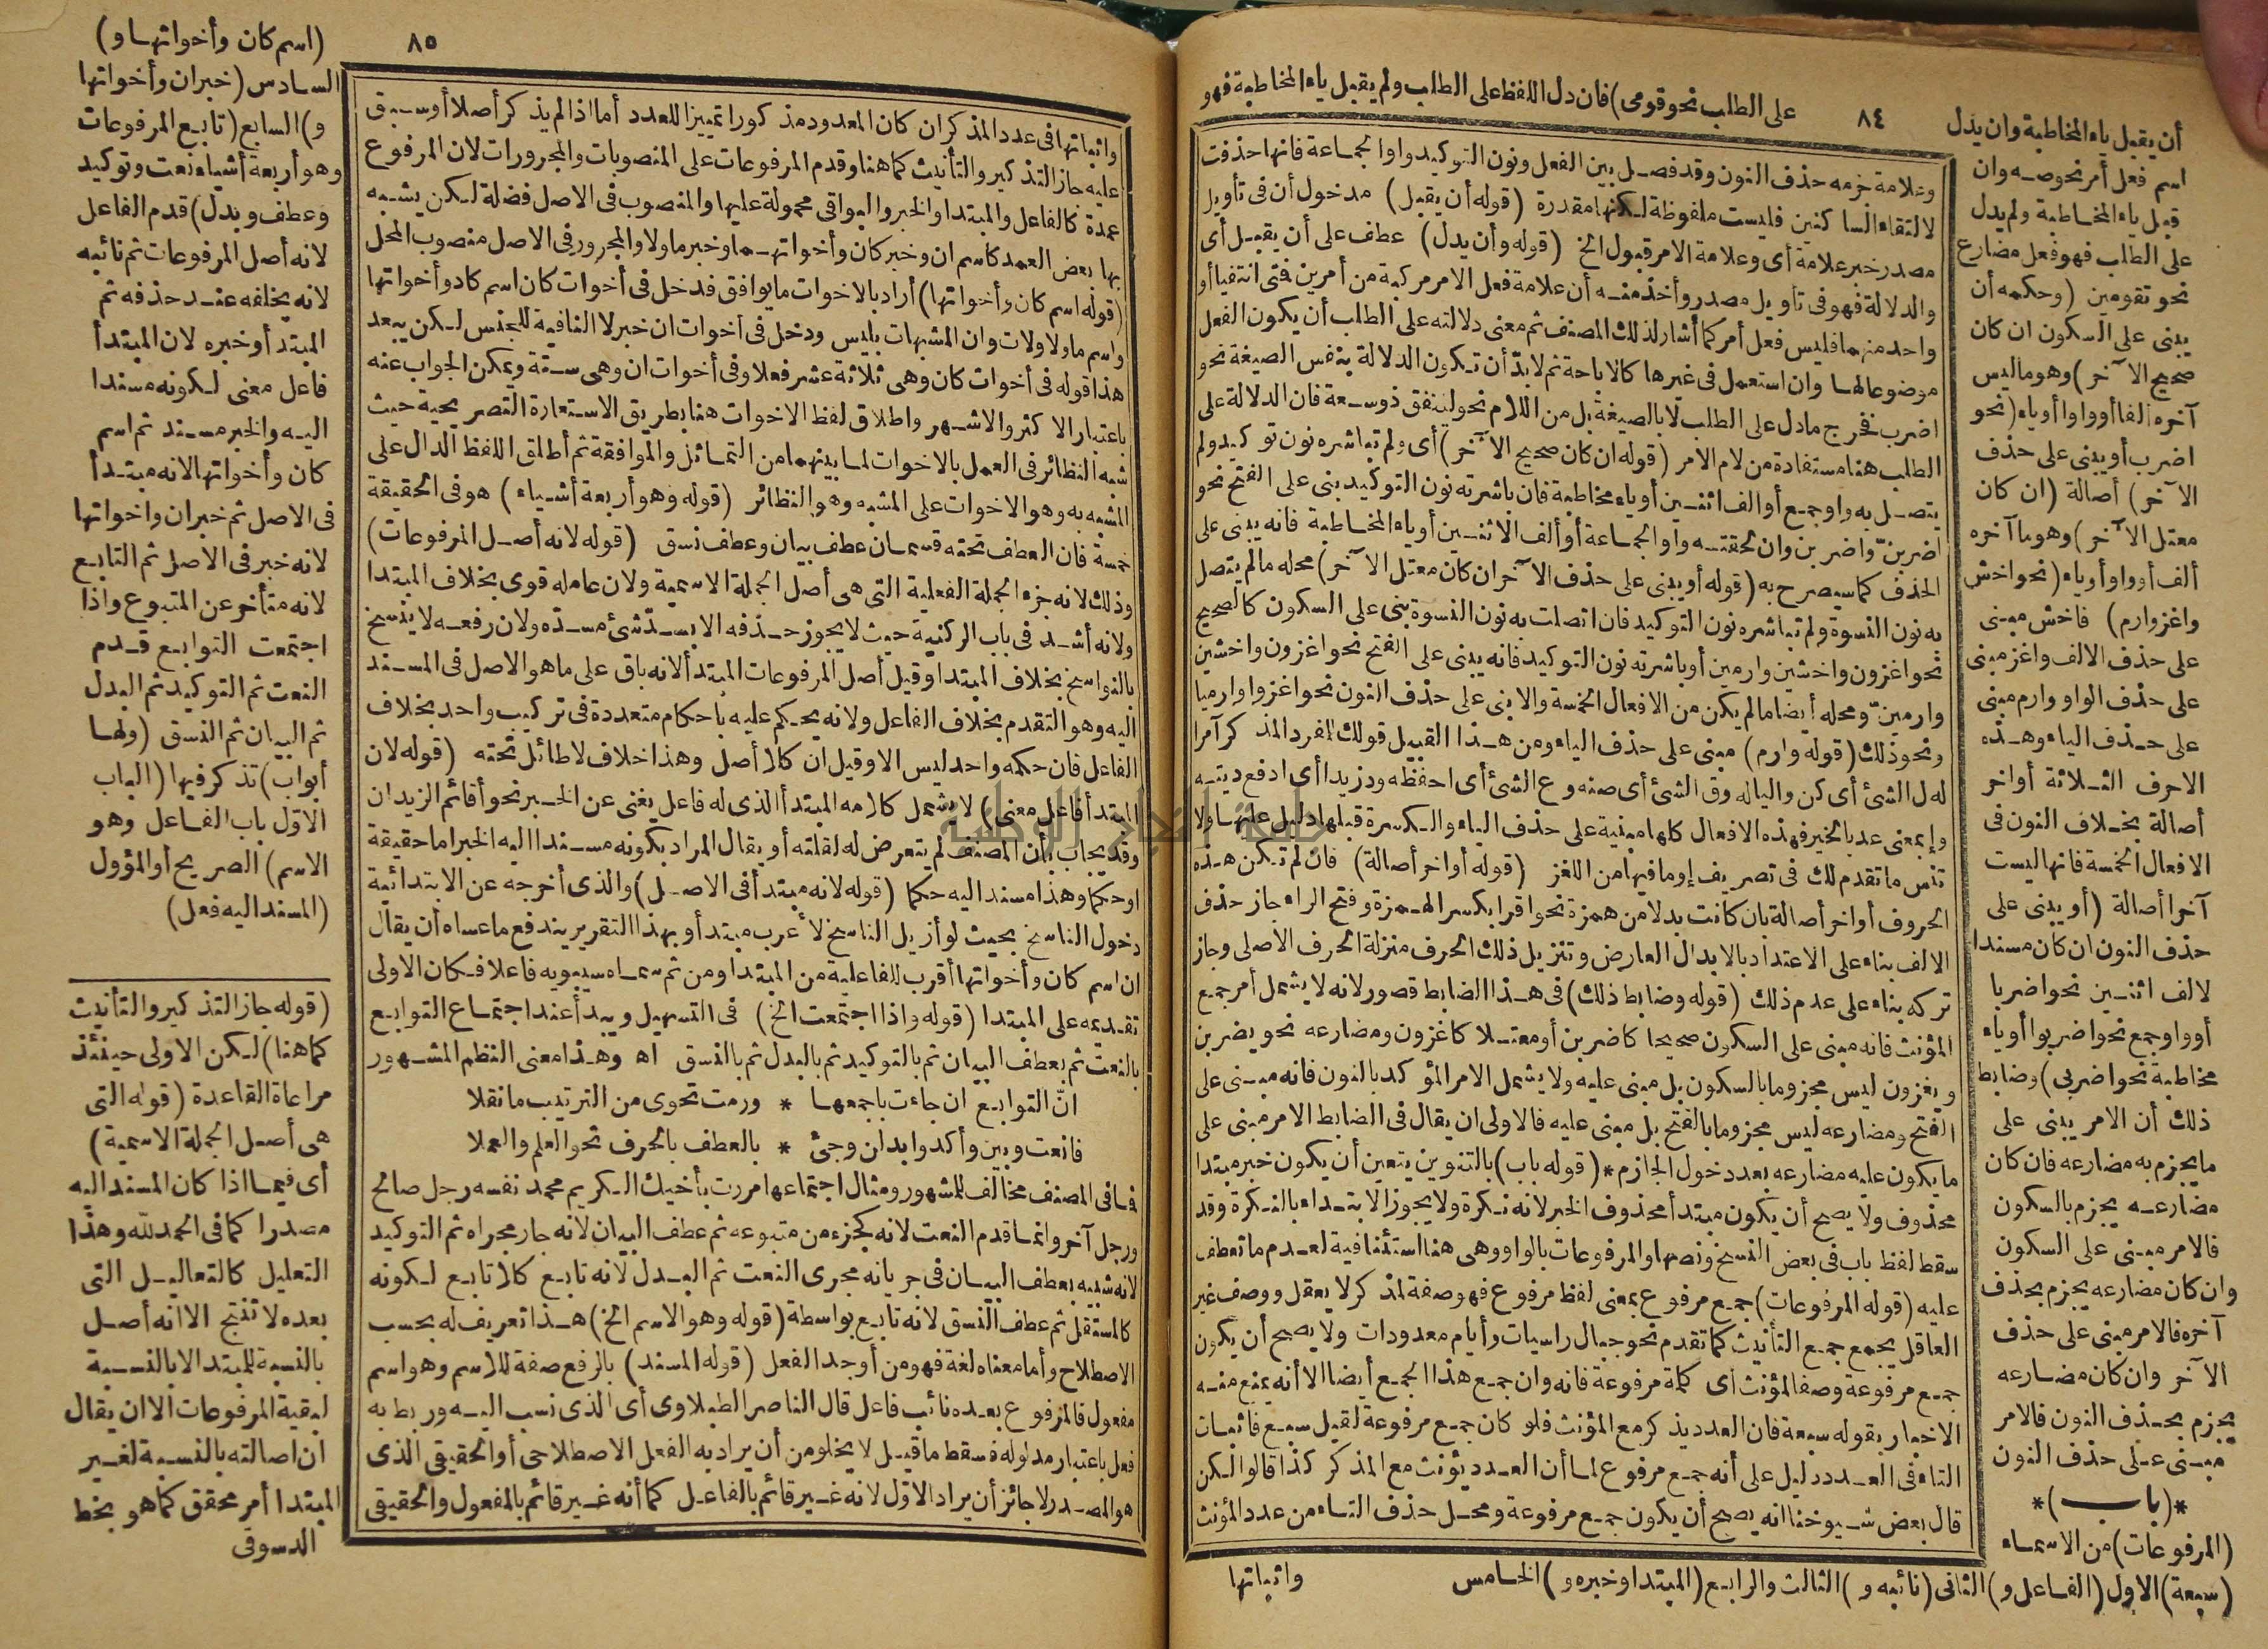 ٨٤
على الطلب نحو قومى) فان دل اللفظ على الطلب ولم يقبل ياء المخاطبة فهو
أن يقبل ياء المخاطبة وان يدل
اسم فعل أمر نحو صه وان
قبل ياء المخاطبة ولم يدل
على الطلب فهو فعل مضارع
نحو تقومين (وحكمه أن
يبنى على السكون ان كان
صحيح الآخر) وهو ما ليس
آخره ألفا أو واوا أو ياء (نحو
اضرب أو يبنى على حذف
الآخر) أصالة (ان كان
معتل الآخر) وهو ما آخره
ألف أو واو أو ياء (نحو اخش
واغز وارم) فاخش مبنى
على حذف الالف واغز مبنى
على حذف الواو وارم مبنى
على حذف الياء وهذه
الاحرف الثلاثة أواخر
أصالة بخلاف النون فى
الافعال الخمسة فانها ليست
آخرا أصالة (أو يبنى على
حذف النون ان كان مسندا
لالف اثنين نحو اضربا
أو واو جمع نحو اضربوا أو ياء
مخاطبة نحو اضربى) وضابط
ذلك أن الامر يبنى على
ما يجزم به مضارعه فان كان
مضارعه يجزم بالسكون
فالامر مبنى على السكون
وان كان مضارعه يجزم بحذف
آخره فالامر مبنى على حذف
الآخر وان كان مضارعه
يجزم بحذف النون فالامر
مبنى على حذف النون
*(باب)*
(المرفوعات) من الاسماء
(سبعة) الاول (الفاعل و) الثانى (نائبه و) الثالث والرابع (المبتدا وخبره و) الخامس
وعلامة جزمه حذف النون وقد فصل بين الفعل ونون التوكيد واو الجماعة فانها حذفت
لالتقاء الساكنين فليست ملفوظة لكنها مقدرة (قوله أن يقبل) مدخول أن فى تأويل
مصدر خبر علامة أى وعلامة الامر قبول الخ (قوله وأن يدل) عطف على أن يقبل أى
والدلالة فهو فى تأويل مصدر وأخذ منه أن علامة فعل الامر مركبة من أمرين فتى انتفيا أو
واحد منهما فليس فعل أمر كما أشار لذلك المصنف ثم معنى دلالته على الطلب أن يكون الفعل
موضوعا لها وان استعمل فى غيرها كالاباحة ثم لابدّ أن تكون الدلالة بنفس الصيغة نحو
اضرب فخرج ما دل على الطلب لا بالصيغة بل من اللام نحو لينفق ذو سعة فان الدلالة على
الطلب هنا مستفادة من لام الامر (قوله ان كان صحيح الآخر) أى ولم تباشره نون توكيد ولم
يتصل به واو جمع أو الف اثنين أو ياء مخاطبة فان باشرته نون التوكيد بنى على الفتح نحو
اضربنّ واضربن وان لحقته واو الجماعة أو ألف الاثنين أو ياء المخاطبة فانه يبنى على
الحذف كما سيصرح به (قوله أو يبنى على حذف الآخر ان كان معتل الآخر) محله ما لم يتصل
به نون النسوة ولم تباشره نون التوكيد فان اتصلت به نون النسوة بنى على السكون كالصحيح
نحو اغزون واخشين وارمين أو باشرته نون التوكيد فانه يبنى على الفتح نحو اغزون واخشين
وارمينّ ومحله أيضا ما لم يكن من الافعال الخمسة والا بنى على حذف النون نحو اغزوا وارميا
ونحو ذلك (قوله وارم) مبنى على حذف الياء ومن هذا القبيل قولك للمفرد المذكر آمرا
له ل الشئ أى كن واليا له وق الشئ أى صنه وع الشئ أى احفظه ود زيدا أى ادفع ديته
وإ بمعنى عد بالخير فهذه الافعال كلها مبنية على حذف الياء والكسرة قبلها دليل عليها ولا
تنس ما تقدم لك فى تصريف إ وما فيها من اللغز (قوله أواخر أصالة) فان لم تكن هذه
الحروف أواخر أصالة بان كانت بدلا من همزة نحو اقرا بكسر الهمزة وفتح الراء جاز حذف
الالف بناء على الاعتداد بالابدال العارض وتنزيل ذلك الحرف منزلة الحرف الاصلى وجاز
تركه بناء على عدم ذلك (قوله وضابط ذلك) فى هذا الضابط قصور لانه لا يشمل أمر جمع
المؤنث فانه مبنى على السكون صحيحا كاضربن أو معتلا كاغزون ومضارعه نحو يضربن
ويغزون ليس مجزوما بالسكون بل مبنى عليه ولا يشمل الامر المؤكد بالنون فانه مبنى على
الفتح ومضارعه ليس مجزوما بالفتح بل مبنى عليه فالاولى ان يقال فى الضابط الامر مبنى على
ما يكون عليه مضارعه بعد دخول الجازم * (قوله باب) بالتنوين يتعين أن يكون خبر مبتدا
محذوف ولا يصح أن يكون مبتدأ محذوف الخبر لانه نكرة ولا يجوز الابتداء بالنكرة وقد
سقط لفظ باب فى بعض النسخ ونصها والمرفوعات بالواو وهى هنا استئنافية لعدم ما تعطف
عليه (قوله المرفوعات) جمع مرفوع بمعنى لفظ مرفوع فهو صفة لمذكر لا يعقل ووصف غير
العاقل يجمع جمع التأنيث كما تقدم نحو جبال راسيات وأيام معدودات ولا يصح أن يكون
جمع مرفوعة وصفا لمؤنث أى كلمة مرفوعة فانه وان جمع هذا الجمع أيضا الا أنه يمنع منه
الاخبار بقوله سبعة فان العدد يذكر مع المؤنث فلو كان جمع مرفوعة لقيل سبع فاثبات
التاء فى العدد دليل على أنه جمع مرفوع لما أن العدد يؤنث مع المذكر كذا قالوا لكن
قال بعض شيوخنا انه يصح أن يكون جمع مرفوعة ومحل حذف التاء من عدد المؤنث
واثباتها
٨٥
(اسم كان وأخواتها و)
السادس (خبر ان وأخواتها
و) السابع (تابع المرفوعات
وهو أربعة أشياء نعت وتوكيد
وعطف وبدل) قدم الفاعل
لانه أصل المرفوعات ثم نائبه
لانه يخلفه عند حذفه ثم
المبتدأ وخبره لان المبتدأ
فاعل معنى لكونه مسندا
اليه والخبر مسند ثم اسم
كان وأخواتها لانه مبتدأ
فى الاصل ثم خبر ان واخواتها
لانه خبر فى الاصل ثم التابع
لانه متأخر عن المتبوع واذا
اجتمعت التوابع قدم
النعت ثم التوكيد ثم البدل
ثم البيان ثم النسق (ولها
أبواب) تذكر فيها (الباب
الاول باب الفاعل وهو
الاسم) الصريح أو المؤول
(المسند اليه فعل)
واثباتها فى عدد المذكر ان كان المعدود مذكورا تمييزا للعدد أما اذا لم يذكر أصلا أو سبق
عليه جاز التذكير والتأنيث كما هنا وقدم المرفوعات على المنصوبات والمجرورات لان المرفوع
عمدة كالفاعل والمبتدا والخبر والبواقى محمولة عليها والمنصوب فى الاصل فضلة لكن يشبه
بها بعض العمد كاسم ان وخبر كان وأخواتهما وخبر ما ولا والمجرور فى الاصل منصوب المحل
(قوله اسم كان وأخواتها) أراد بالاخوات ما يوافق فدخل فى أخوات كان اسم كاد وأخواتها
واسم ما ولا ولات وان المشبهات بليس ودخل فى أخوات ان خبر لا النافية للجنس لكن يبعد
هذا قوله فى أخوات كان وهى ثلاثة عشر فعلا وفى أخوات ان وهى ستة ويمكن الجواب عنه
باعتبار الاكثر والاشهر واطلاق لفظ الاخوات هنا بطريق الاستعارة التصريحية حيث
شبه النظائر فى العمل بالاخوات لما بينهما من التماثل والموافقة ثم أطلق اللفظ الدال على
المشبه به وهو الاخوات على المشبه وهو النظائر (قوله وهو أربعة أشياء) هو فى الحقيقة
خمسة فان العطف تحته قسمان عطف بيان وعطف نسق (قوله لانه أصل المرفوعات)
وذلك لانه جزء الجملة الفعلية التى هى أصل الجملة الاسمية ولان عامله قوى بخلاف المبتدا
ولانه أشد فى باب الركنية حيث لا يجوز حذفه الا بسدّ شئ مسدّه ولان رفعه لا ينسخ
بالنواسخ بخلاف المبتدا وقيل أصل المرفوعات المبتدأ لانه باق على ما هو الاصل فى المسند
اليه وهو التقدم بخلاف الفاعل ولانه يحكم عليه باحكام متعددة فى تركيب واحد بخلاف
الفاعل فان حكمه واحد ليس الا وقيل ان كلا أصل وهذا خلاف لا طائل تحته (قوله لان
المبتدأ فاعل معنى) لا يشمل كلامه المبتدأ الذى له فاعل يغنى عن الخبر نحو أقائم الزيدان
وقد يجاب بأن المصنف لم يتعرض له لقلته أو يقال المراد بكونه مسندا اليه الخبر اما حقيقة
او حكما وهذا مسند اليه حكما (قوله لانه مبتدأ فى الاصل) والذى أخرجه عن الابتدائية
دخول الناسخ بحيث لو أزيل الناسخ لأعرب مبتدأ وبهذا التقرير يندفع ما عساه أن يقال
ان اسم كان وأخواتها أقرب للفاعلية من المبتدا ومن ثم سماه سيبويه فاعلا فكان الاولى
تقديمه على المبتدا (قوله واذا اجتمعت الخ) فى التسهيل ويبدأ عند اجتماع التوابع
بالنعت ثم بعطف البيان ثم بالتوكيد ثم بالبدل ثم بالنسق اه وهذا معنى النظم المشهور
انّ التوابع ان جاءت باجمعها * ورمت تحوى من الترتيب ما نقلا
فانعت وبين وأكد وابدلن وجئ * بالعطف بالحرف نحو العلم والعملا
فما فى المصنف مخالف للمشهور ومثال اجتماعها مررت بأخيك الكريم محمد نفسه رجل صالح
ورجل آخر وانما قدم النعت لانه كجزء من متبوعه ثم عطف البيان لانه جار مجراه ثم التوكيد
لانه شبيه بعطف البيان فى جريانه مجرى النعت ثم البدل لانه تابع كلا تابع لكونه
كالمستقل ثم عطف النسق لانه تابع بواسطة (قوله وهو الاسم الخ) هذا تعريف له بحسب
الاصطلاح وأما معناه لغة فهو من أوجد الفعل (قوله المسند) بالرفع صفة للاسم وهو اسم
مفعول فالمرفوع بعده نائب فاعل قال الناصر الطبلاوى أى الذى نسب اليه وربط به
فعل باعتبار مدلوله فسقط ما قيل لا يخلو من أن يراد به الفعل الاصطلاحى أو الحقيقى الذى
هو المصدر لا جائز أن يراد الاول لانه غير قائم بالفاعل كما أنه غير قائم بالمفعول والحقيقى
(قوله جاز التذكير والتأنيث
كما هنا) لكن الاولى حينئذ
مراعاة القاعدة (قوله التى
هى أصل الجملة الاسمية)
أى فيما اذا كان المسند اليه
مصدرا كما فى الحمد لله وهذا
التعليل كالتعاليل التى
بعده لا تنتج الا انه أصل
بالنسبة للمبتدا لا بالنسبة
لبقية المرفوعات الا ان يقال
ان اصالته بالنسبة لغير
المبتدا أمر محقق كما هو بخط
الدسوقى